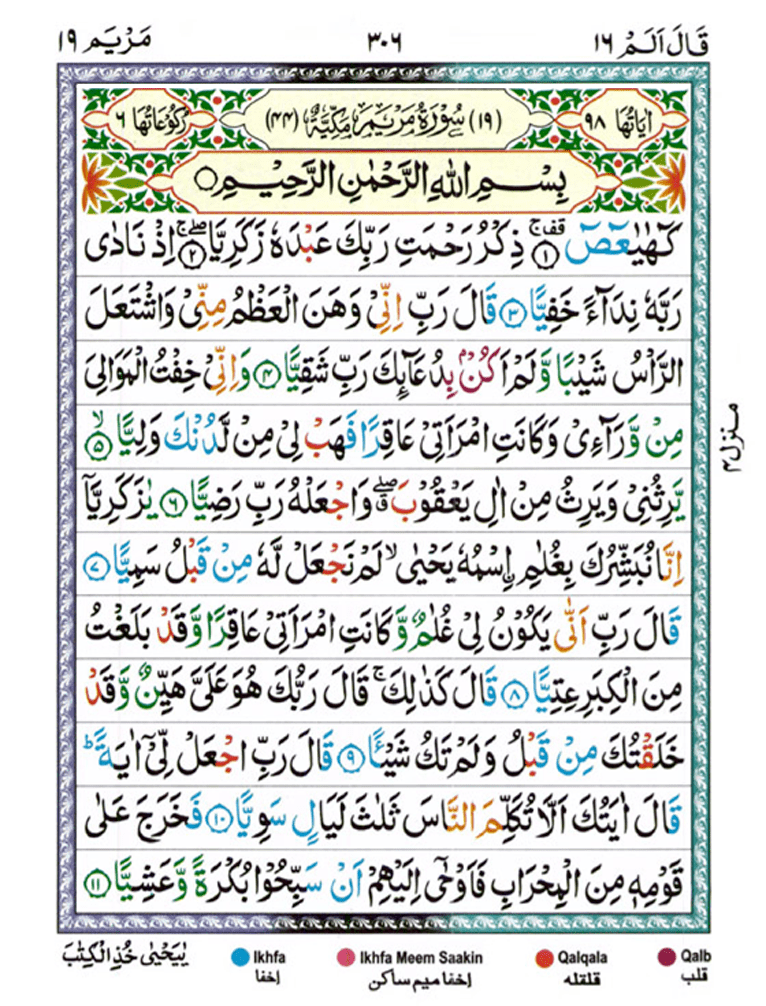 قَالَ اَلَمْ ١٦
٣٠٦
مَرْيَم ١٩
اٰيَاتُهَا ٩٨
(١٩) سُوْرَةُ مَرْيَمَ مَكِّيَّةٌ (٤٤)
رُكُوْعَاتُهَا ٦
بِسْمِ اللّٰهِ الرَّحْمٰنِ الرَّحِيْمِ
كٓهٰيٰعٓصٓ ۚ‏ ﴿١﴾ ذِكْرُ رَحْمَتِ رَبِّكَ عَبْدَهٗ زَكَرِيَّا ۖۚ‏ ﴿٢﴾ اِذْ نَادٰى
رَبَّهٗ نِدَآءً خَفِيًّا ﴿٣﴾ قَالَ رَبِّ اِنِّىْ وَهَنَ الْعَظْمُ مِنِّىْ وَاشْتَعَلَ
الرَّاْسُ شَيْبًا وَّلَمْ اَكُنْۢ بِدُعَآئِكَ رَبِّ شَقِيًّا ﴿٤﴾ وَاِنِّىْ خِفْتُ الْمَوَالِىَ
مِنْ وَّرَآءِىْ وَكَانَتِ امْرَاَتِىْ عَاقِرًا فَهَبْ لِىْ مِنْ لَّدُنْكَ وَلِيًّا ۙ‏ ﴿٥﴾
يَّرِثُنِىْ وَيَرِثُ مِنْ اٰلِ يَعْقُوْبَ ۖ وَاجْعَلْهُ رَبِّ رَضِيًّا ﴿٦﴾ يٰزَكَرِيَّاۤ
اِنَّا نُبَشِّرُكَ بِغُلٰمِ ۨاسْمُهٗ يَحْيٰى ۙ لَمْ نَجْعَلْ لَّهٗ مِنْ قَبْلُ سَمِيًّا ﴿٧﴾
قَالَ رَبِّ اَنّٰى يَكُوْنُ لِىْ غُلٰمٌ وَّكَانَتِ امْرَاَتِىْ عَاقِرًا وَّقَدْ بَلَغْتُ
مِنَ الْكِبَرِ عِتِيًّا ﴿٨﴾ قَالَ كَذٰلِكَ ۚ قَالَ رَبُّكَ هُوَ عَلَىَّ هَيِّنٌ وَّقَدْ
خَلَقْتُكَ مِنْ قَبْلُ وَلَمْ تَكُ شَيْـًٔا ﴿٩﴾ قَالَ رَبِّ اجْعَلْ لِّىْۤ اٰيَةً ؕ
قَالَ اٰيَتُكَ اَلَّا تُكَلِّمَ النَّاسَ ثَلٰثَ لَيَالٍ سَوِيًّا ﴿١٠﴾ فَخَرَجَ عَلٰى
قَوْمِهٖ مِنَ الْمِحْرَابِ فَاَوْحٰٓى اِلَيْهِمْ اَنْ سَبِّحُوْا بُكْرَةً وَّعَشِيًّا ﴿١١﴾
منزل ٤
يٰيَحْيٰى خُذِ الْكِتٰبَ
Ikhfa
إخفا
Ikhfa Meem Saakin
إخفا ميم ساكن
Qalqala
قلقله
Qalb
قلب